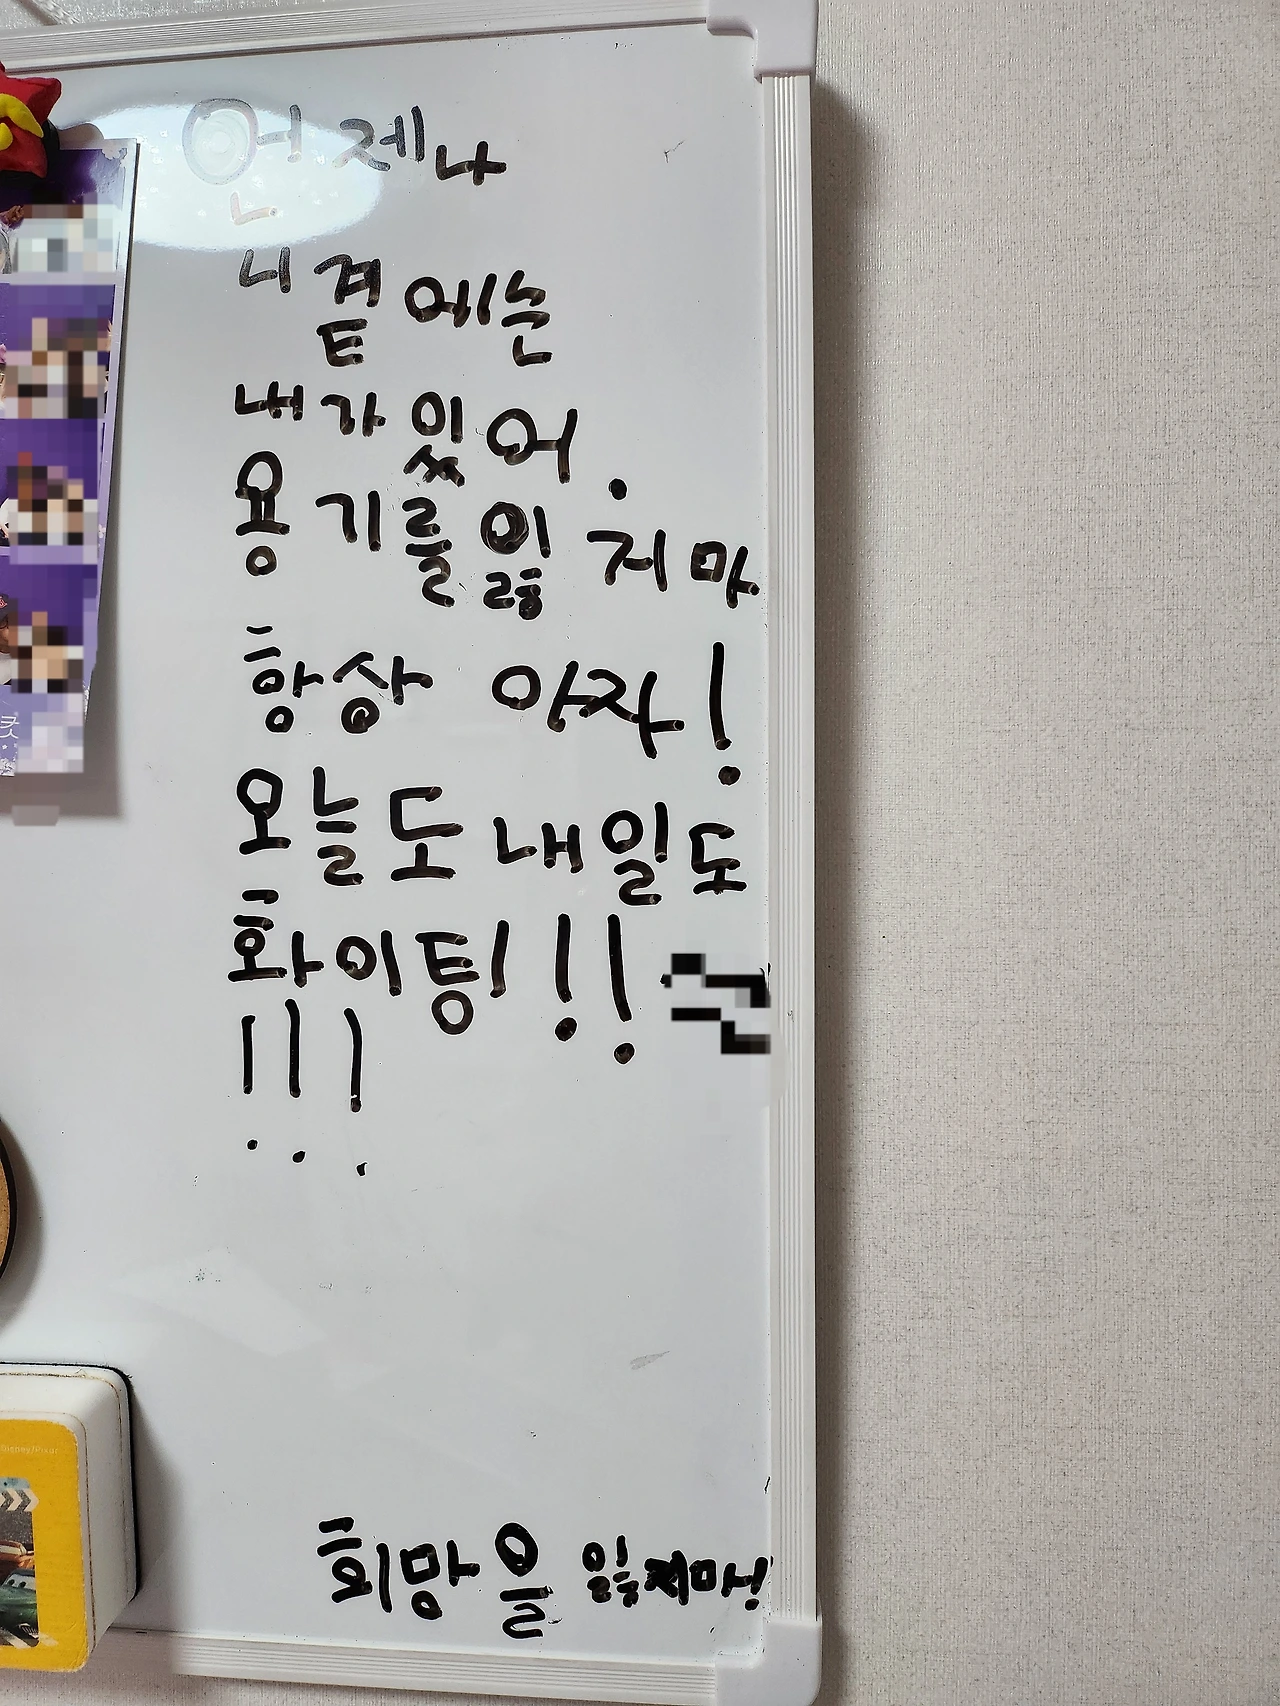 언제나
니 곁에는
내가 있어.
용기를 잃지마
항상 아자!
오늘도 내일도
화이팅!!
!!!
희망을 잃지마!
Disney/Pixar